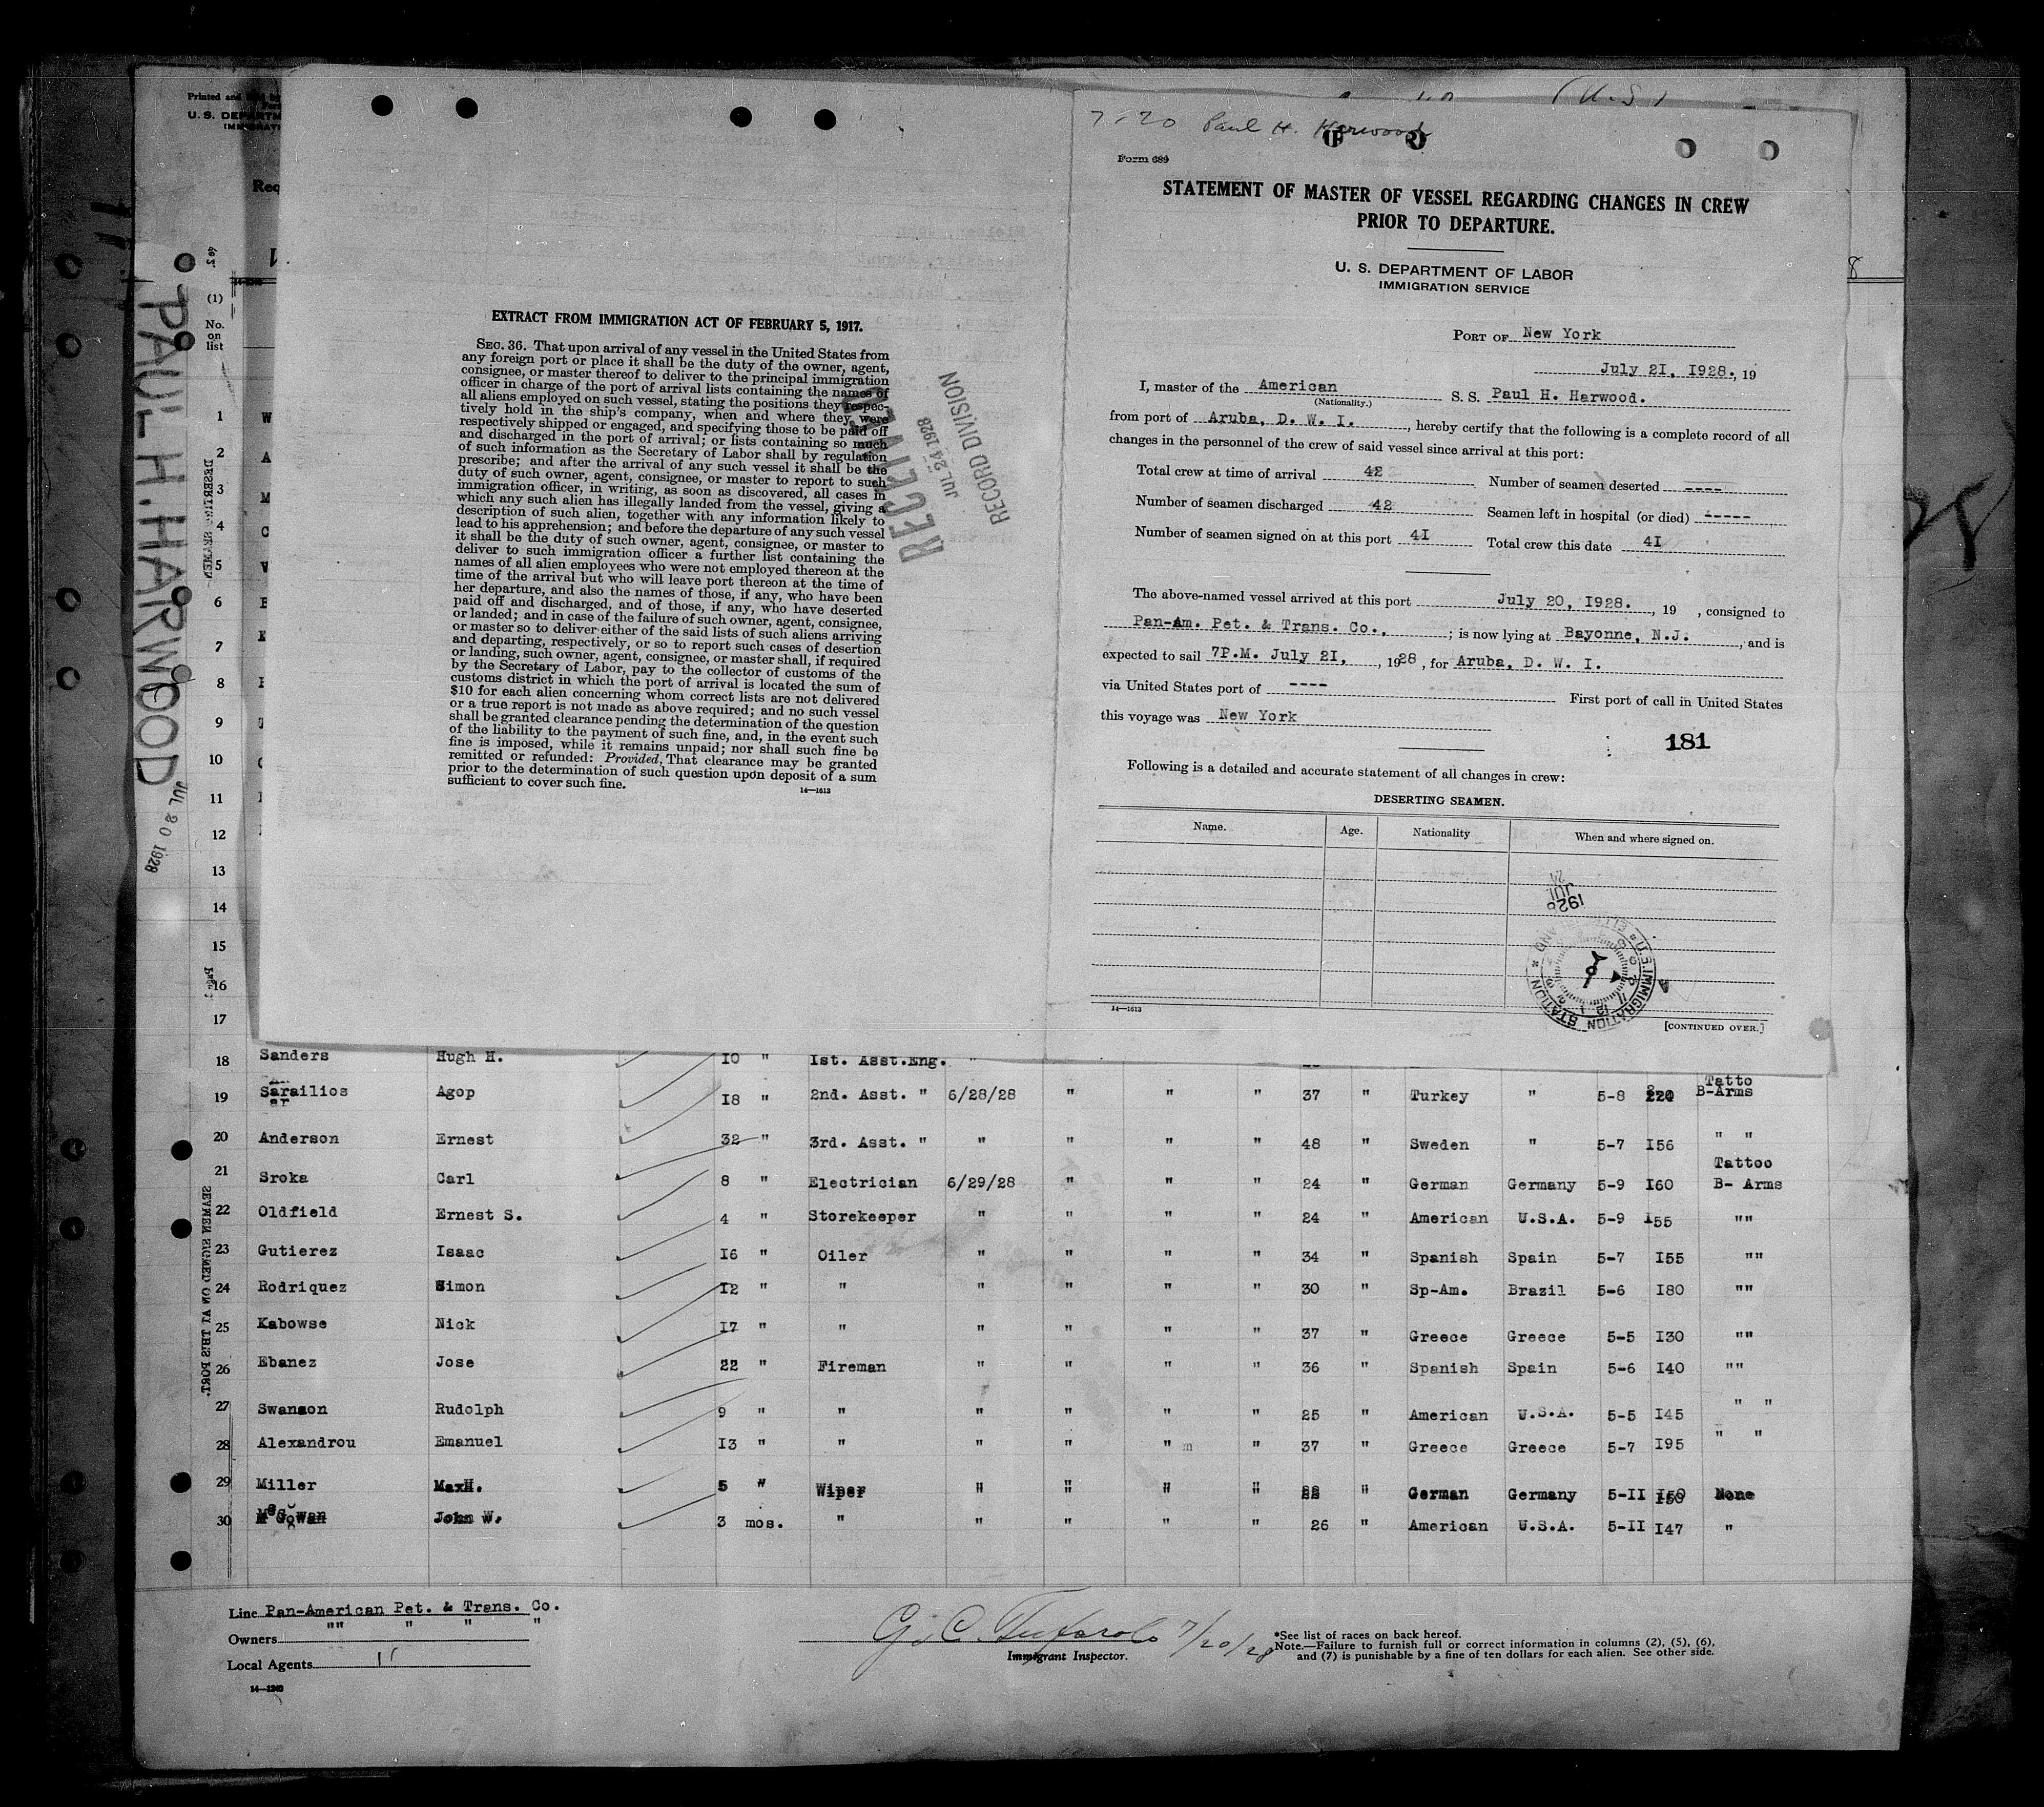 Printed and
U. S. DEPARTM
IMMIGRATI
Req
(1)
No.
on
list
PAUL H. HARWOOD
JUL 20 1928
DESERTING SEAMEN.
SEAMEN SIGNED ON AT THIS PORT.
1 W
2 A
3 M
4 C
5 V
6 E
7 K
8
9
10
11
12
13
14
15
16
17
EXTRACT FROM IMMIGRATION ACT OF FEBRUARY 5, 1917.
SEC. 36. That upon arrival of any vessel in the United States from
any foreign port or place it shall be the duty of the owner, agent,
consignee, or master thereof to deliver to the principal immigration
officer in charge of the port of arrival lists containing the names of
all aliens employed on such vessel, stating the positions they respec-
tively hold in the ship's company, when and where they were
respectively shipped or engaged, and specifying those to be paid off
and discharged in the port of arrival; or lists containing so much
of such information as the Secretary of Labor shall by regulation
prescribe; and after the arrival of any such vessel it shall be the
duty of such owner, agent, consignee, or master to report to such
immigration officer, in writing, as soon as discovered, all cases in
which any such alien has illegally landed from the vessel, giving a
description of such alien, together with any information likely to
lead to his apprehension; and before the departure of any such vessel
it shall be the duty of such owner, agent, consignee, or master to
deliver to such immigration officer a further list containing the
names of all alien employees who were not employed thereon at the
time of the arrival but who will leave port thereon at the time of
her departure, and also the names of those, if any, who have been
paid off and discharged, and of those, if any, who have deserted
or landed; and in case of the failure of such owner, agent, consignee,
or master so to deliver either of the said lists of such aliens arriving
and departing, respectively, or so to report such cases of desertion
or landing, such owner, agent, consignee, or master shall, if required
by the Secretary of Labor, pay to the collector of customs of the
customs district in which the port of arrival is located the sum of
$10 for each alien concerning whom correct lists are not delivered
or a true report is not made as above required; and no such vessel
shall be granted clearance pending the determination of the question
of the liability to the payment of such fine, and, in the event such
fine is imposed, while it remains unpaid; nor shall such fine be
remitted or refunded: Provided, That clearance may be granted
prior to the determination of such question upon deposit of a sum
sufficient to cover such fine.
14—1613
RECEIVED
JUL 24 1928
RECORD DIVISION
(U.S)
7-20 Paul H. Harwood
Form 689
STATEMENT OF MASTER OF VESSEL REGARDING CHANGES IN CREW
PRIOR TO DEPARTURE.
U. S. DEPARTMENT OF LABOR
IMMIGRATION SERVICE
PORT OF New York
July 21, 1928., 19
I, master of the American S. S. Paul H. Harwood.
(Nationality.)
from port of Aruba, D. W. I. , hereby certify that the following is a complete record of all
changes in the personnel of the crew of said vessel since arrival at this port:
Total crew at time of arrival 42 Number of seamen deserted ----
Number of seamen discharged 42 Seamen left in hospital (or died) -----
Number of seamen signed on at this port 41 Total crew this date 41
The above-named vessel arrived at this port July 20, 1928. , 19 , consigned to
Pan-Am. Pet. & Trans. Co., ; is now lying at Bayonne, N.J. , and is
expected to sail 7P.M. July 21, , 1928 , for Aruba, D. W. I.
via United States port of ---- First port of call in United States
this voyage was New York
181
Following is a detailed and accurate statement of all changes in crew:
DESERTING SEAMEN.
Name. Age. Nationality When and where signed on.
1928
JUL
24
U.S. IMMIGRATION STATION * ELLIS ISLAND *
14—1613
[CONTINUED OVER.]
18 Sanders Hugh H. 10 " 1st. Asst.Eng. "
19 Sarailios Agop 18 " 2nd. Asst. " 6/28/28 " " " 37 " Turkey " 5-8 220 Tatto B-Arms
20 Anderson Ernest 32 " 3rd. Asst. " " " " " 48 " Sweden " 5-7 156 " "
21 Sroka Carl 8 " Electrician 6/29/28 " " " 24 " German Germany 5-9 160 Tattoo B- Arms
22 Oldfield Ernest S. 4 " Storekeeper " " " " 24 " American U.S.A. 5-9 155 ""
23 Gutierez Isaac 16 " Oiler " " " " 34 " Spanish Spain 5-7 155 ""
24 Rodriquez Simon 12 " " " " " " 30 " Sp-Am. Brazil 5-6 180 ""
25 Kabowse Nick 17 " " " " " " 37 " Greece Greece 5-5 130 ""
26 Ebanez Jose 22 " Fireman " " " " 36 " Spanish Spain 5-6 140 ""
27 Swanson Rudolph 9 " " " " " " 25 " American U.S.A. 5-5 145 " "
28 Alexandrou Emanuel 13 " " " " " m " 37 " Greece Greece 5-7 195 " "
29 Miller MaxH. 5 " Wiper " " " " 22 " German Germany 5-11 150 None
30 McGowan John W. 3 mos. " " " " " 26 " American U.S.A. 5-11 147 "
Line Pan-American Pet. & Trans. Co.
Owners "" " " "
Local Agents "
14—1240
7/20/28
Immigrant Inspector.
*See list of races on back hereof.
Note.—Failure to furnish full or correct information in columns (2), (5), (6),
and (7) is punishable by a fine of ten dollars for each alien. See other side.